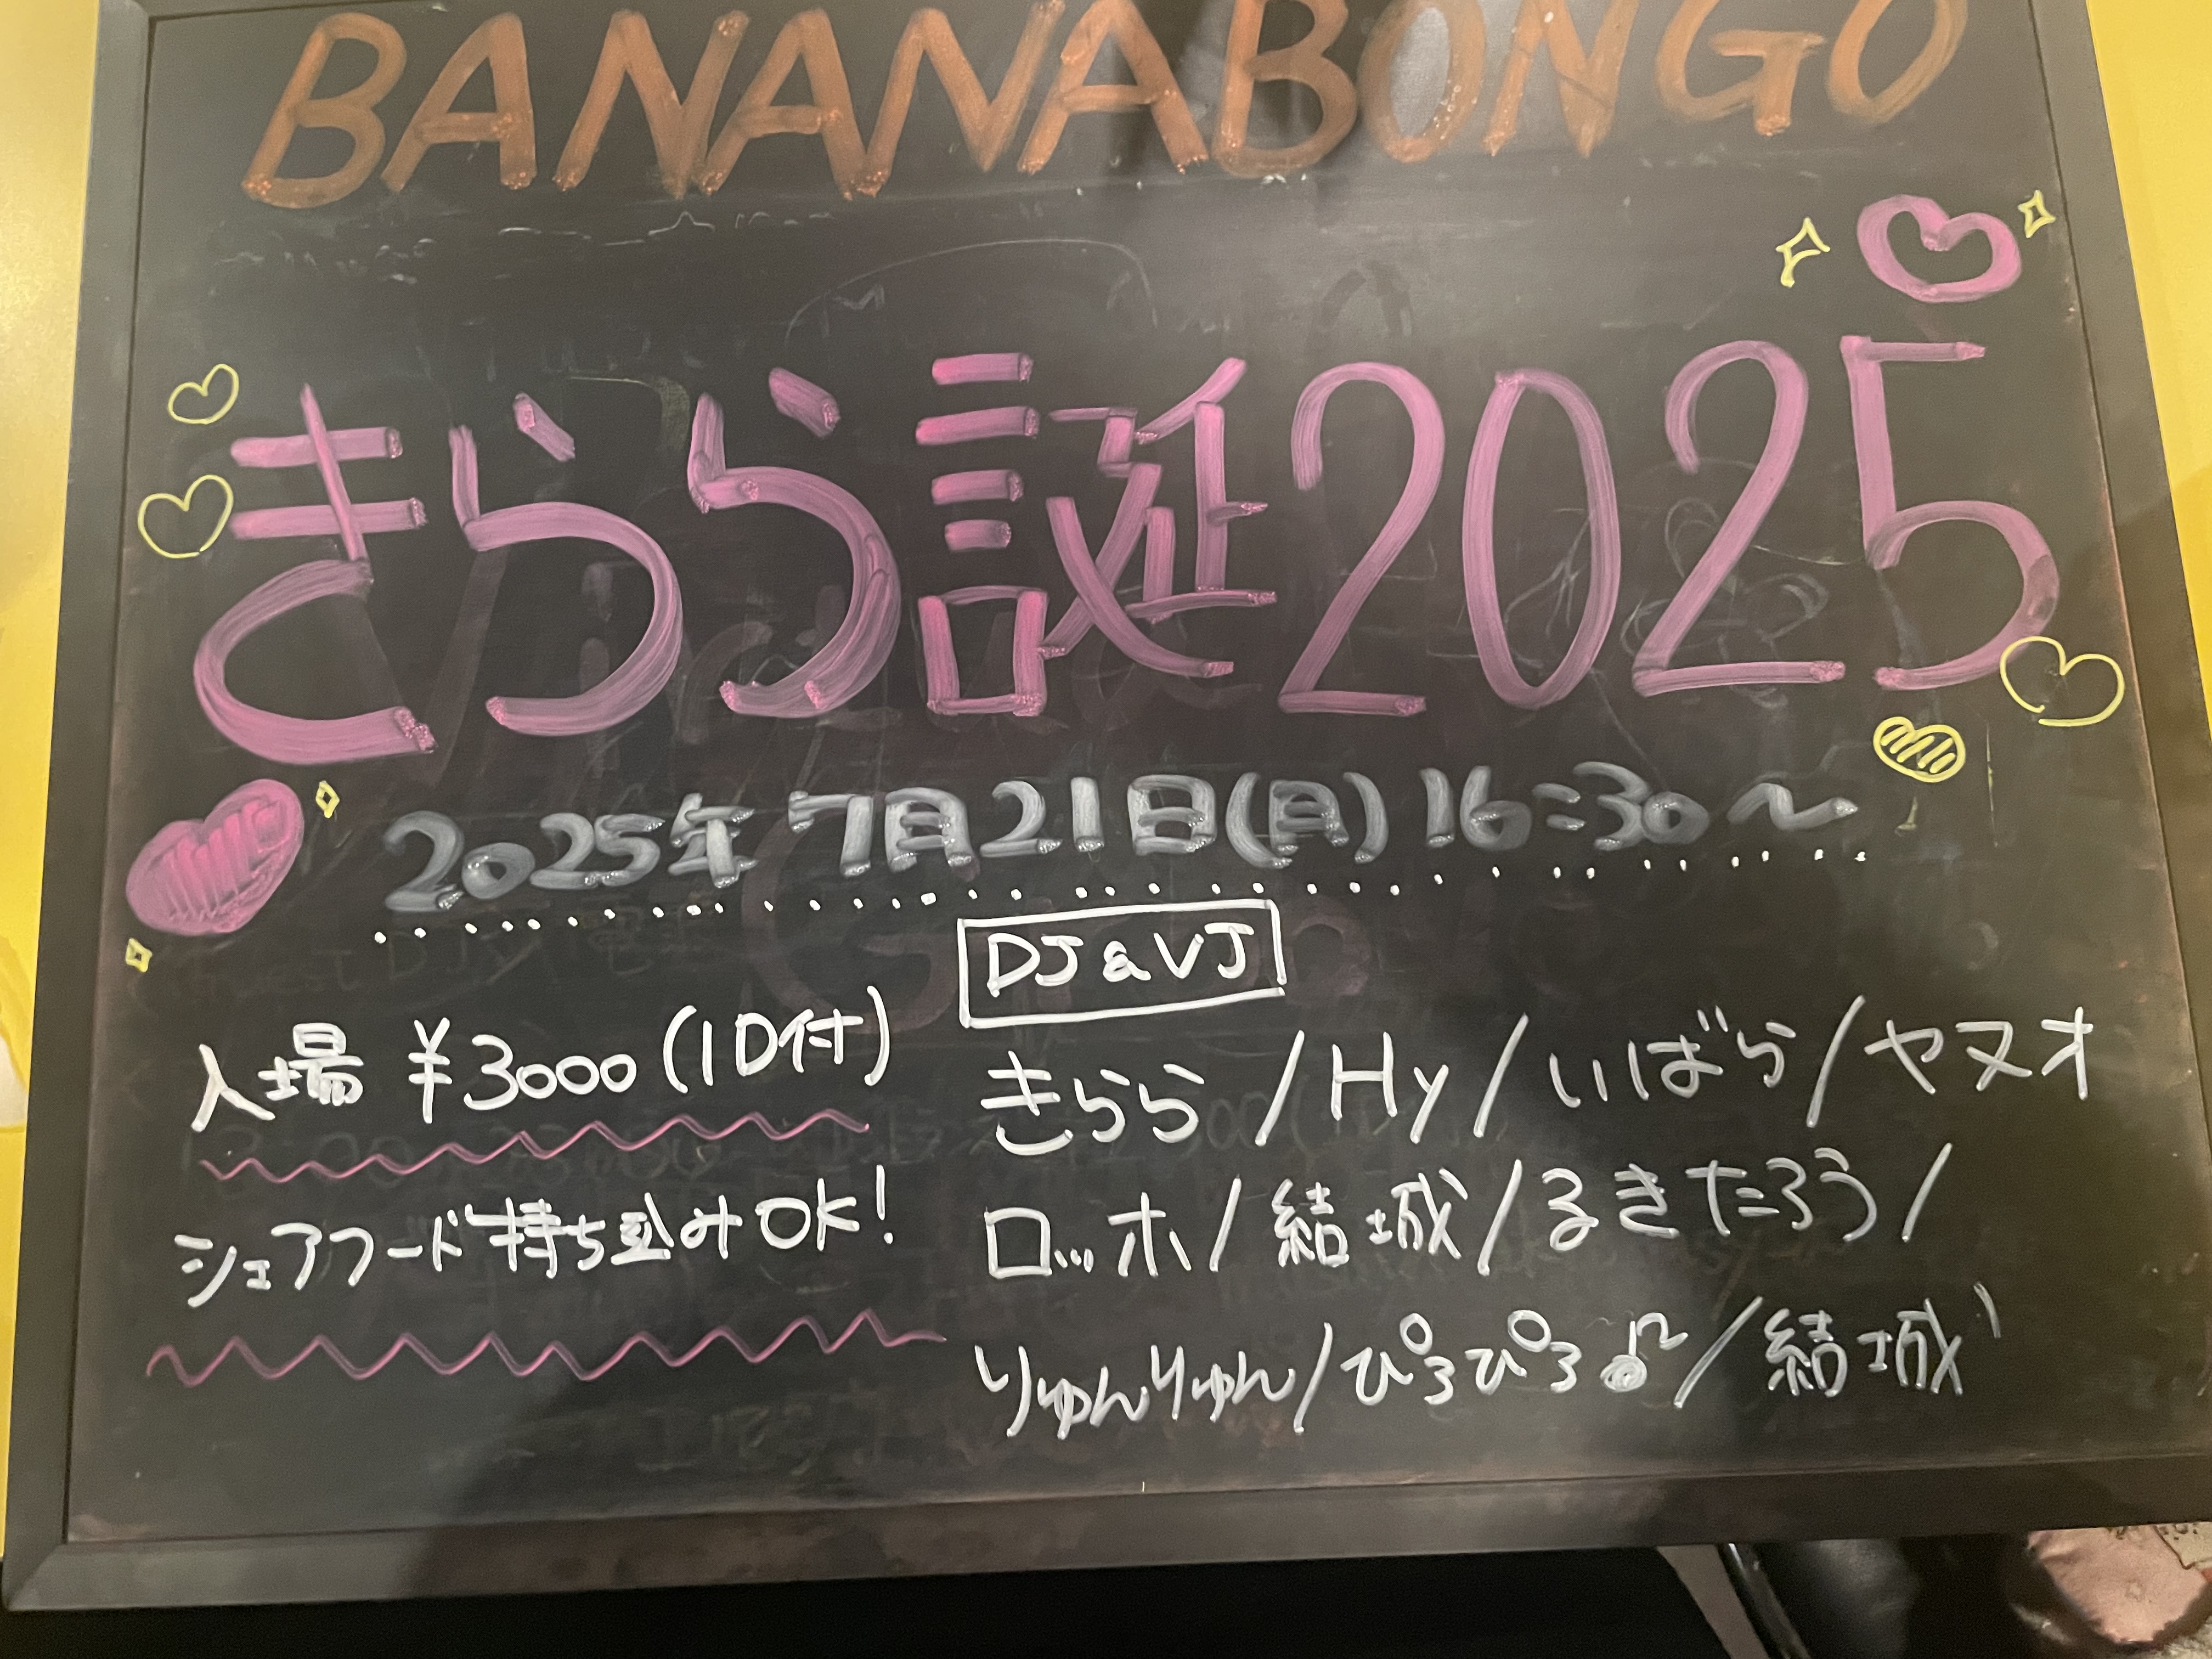 BANANABONGO
きらら誕2025
2025年7月21日(月)16:30～
DJ&VJ
入場 ¥3000(1D付)
シェアフード持ち込みOK!
きらら/Hy/いばら/ヤヌオ
ロッホ/結城/るきたろう/
りゅんりゅん/ぴろぴろ♪/結城